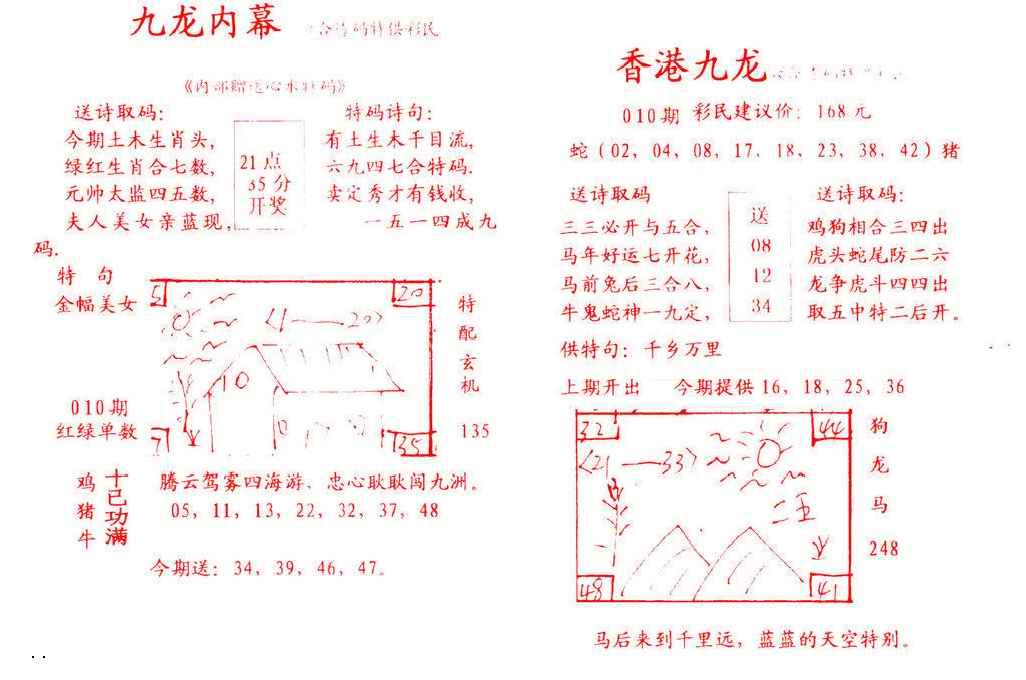 九龙内幕
《内部赠送心水特码》
送诗取码:
今期土木生肖头,
绿红生肖合七数,
元帅太监四五数,
夫人美女亲蓝现,
码.
21点
35分
开奖
特码诗句:
有土生木千目流,
六九四七合特码.
卖定秀才有钱收,
一五一四成九
特 句
金幅美女
010期
红绿单数
5
20
〈1——20〉
10
7
35
特
配
玄
机
135
鸡
猪
牛
十己功满
腾云驾雾四海游、忠心耿耿闯九洲。
05, 11, 13, 22, 32, 37, 48
今期送: 34, 39, 46, 47。
香港九龙
010期 彩民建议价: 168元
蛇（02, 04, 08, 17, 18, 23, 38, 42）猪
送诗取码
三三必开与五合,
马年好运七开花,
马前兔后三合八,
牛鬼蛇神一九定,
送
08
12
34
送诗取码:
鸡狗相合三四出
虎头蛇尾防二六
龙争虎斗四四出
取五中特二后开。
供特句: 千乡万里
上期开出 今期提供16, 18, 25, 36
32
44
〈21——33〉
二五
48
41
狗
龙
马
248
马后来到千里远, 蓝蓝的天空特别。